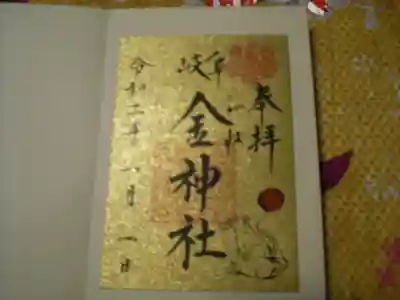 奉拝
岐阜
金神社
令和二年
一月
一日